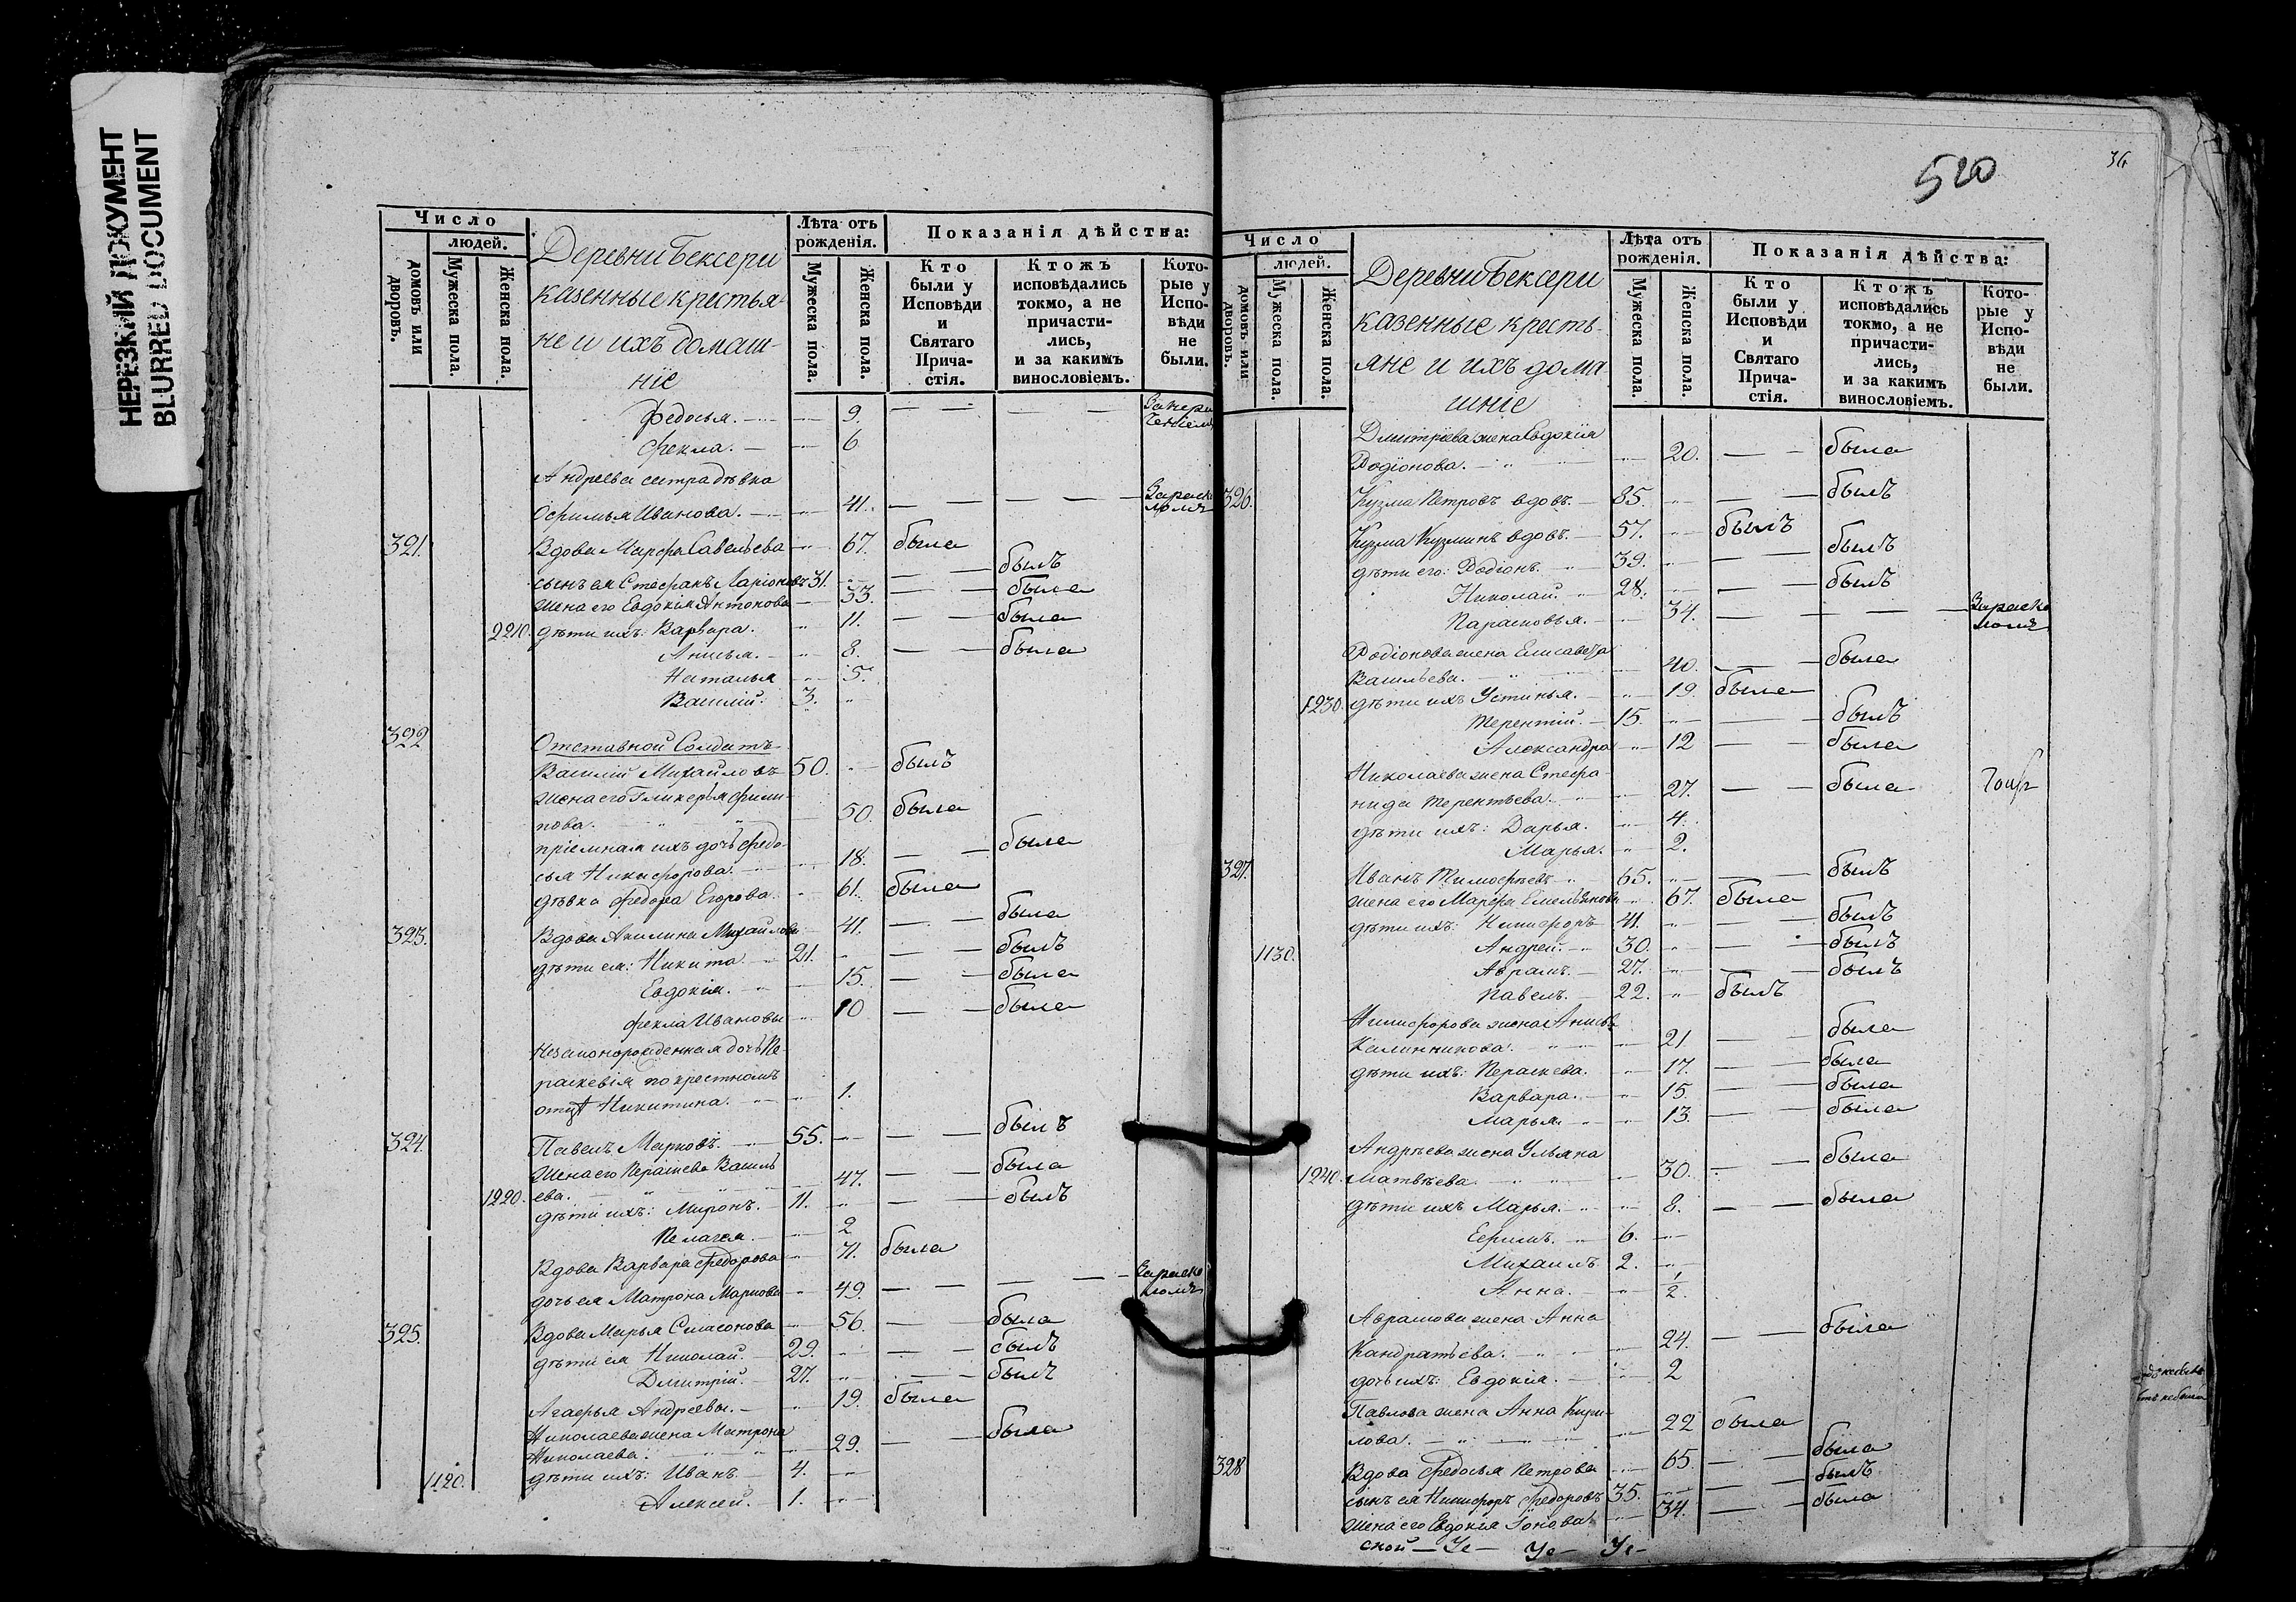 НЕРЕЗКИЙ ДОКУМЕНТ
BLURRED DOCUMENT
Число
людей.
домовъ или дворовъ.
Мужеска пола.
Женска пола.
Деревни Бексери
казенные крестья-
не и ихъ домаш-
ніе
Лѣта отъ рожденія.
Мужеска пола.
Женска пола.
Показанія дѣйства:
Кто были у Исповѣди и Святаго Прича-стія.
Ктожъ исповѣдались токмо, а не причасти-лись, и за какимъ винословіемъ.
Кото-рые у Испо-вѣди не были.
Федосья. 9.
Фекла. 6
Андреева сестра дѣвка
Офимья Иванова. 41.
321. Вдова Марфа Савельева 67. была
сынъ ея Стефанъ Ларіоновъ 31. былъ
жена его Евдокія Антонова 33. была
2210. дѣти ихъ: Варвара. 11. была
Анисья. 8. была
Наталья 5.
Василій. 3.
322 Отставной Солдатъ
Василій Михайловъ 50. былъ
жена его Гликерья Фили-
пова. 50. была
пріемная ихъ дочь Федо-
сья Никифорова. 18. была
дѣвка Федора Егорова. 61. была
323. Вдова Акилина Михайлова 41. была
дѣти ея: Никита. 21. былъ
Евдокія. 15. была
Фекла Ивановы 10 была
Незаконорожденная дочь Па-
раскевія по крестномъ
отцѣ Никитина. 1.
324. Павелъ Марковъ. 55. былъ
Жена его Параскева Василь
ева. 47. была
1220. дѣти ихъ: Миронъ. 11. былъ
Пелагея. 2
Вдова Варвара Федорова 71. была
дочь ея Матрона Маркова 49.
325. Вдова Марья Симеонова 56. была
дѣти ея Николай. 29. былъ
Дмитрій. 27. былъ
Агафья Андреевы. 19. была
Николаева жена Матрона
Николаева. 29. была
1120. дѣти ихъ: Иванъ. 4.
Алексей. 1.
520
36
Число
людей.
домовъ или дворовъ.
Мужеска пола.
Женска пола.
Деревни Бексери
казенные кресть-
яне и ихъ дома
шніе
Лѣта отъ рожденія.
Мужеска пола.
Женска пола.
Показанія дѣйства:
Кто были у Исповѣди и Святаго Прича-стія.
Ктожъ исповѣдались токмо, а не причасти-лись, и за какимъ винословіемъ.
Кото-рые у Испо-вѣди не были.
Дмитріева жена Евдокія
Родіонова. 20. была
326. Кузма Петровъ вдовъ. 85. былъ
Кузма Кузминъ вдовъ. 57. былъ
дѣти его: Родіонъ. 39. былъ
Николай. 28. былъ
Парасковья. 34.
Родіонова жена Елисавета
Васильева. 40. была
1230. дѣти ихъ Устинья. 19. была
Терентій. 15. былъ
Александра 12 была
Николаева жена Стефа-
нида Терентьева. 27. была
дѣти ихъ: Дарья. 4.
Марья. 2.
327. Иванъ Тимофѣевъ 65. былъ
жена его Марфа Емельянова 67. была
дѣти ихъ: Никифоръ 41. былъ
1130. Андрей. 30. былъ
Аврамъ. 27. былъ
Павелъ. 22. былъ
Никифорова жена Анисья
Калинникова. 21. была
дѣти ихъ: Параскева. 17. была
Варвара. 15. была
Марья. 13. была
Андрѣева жена Ульяна
1240. Матвѣева 30. была
дѣти ихъ Марья. 8. была
Ефимъ. 6.
Михаилъ 2.
Анна. 1/2.
Аврамова жена Анна
Кандратьева. 24. была
дочь ихъ: Евдокія. 2
Павлова жена Анна Кири-
лова. 22 была
328 Вдова Федосья Петрова 65. была
сынъ ея Никифоръ Федоровъ 35. былъ
жена его Евдокія Іонова 34. была